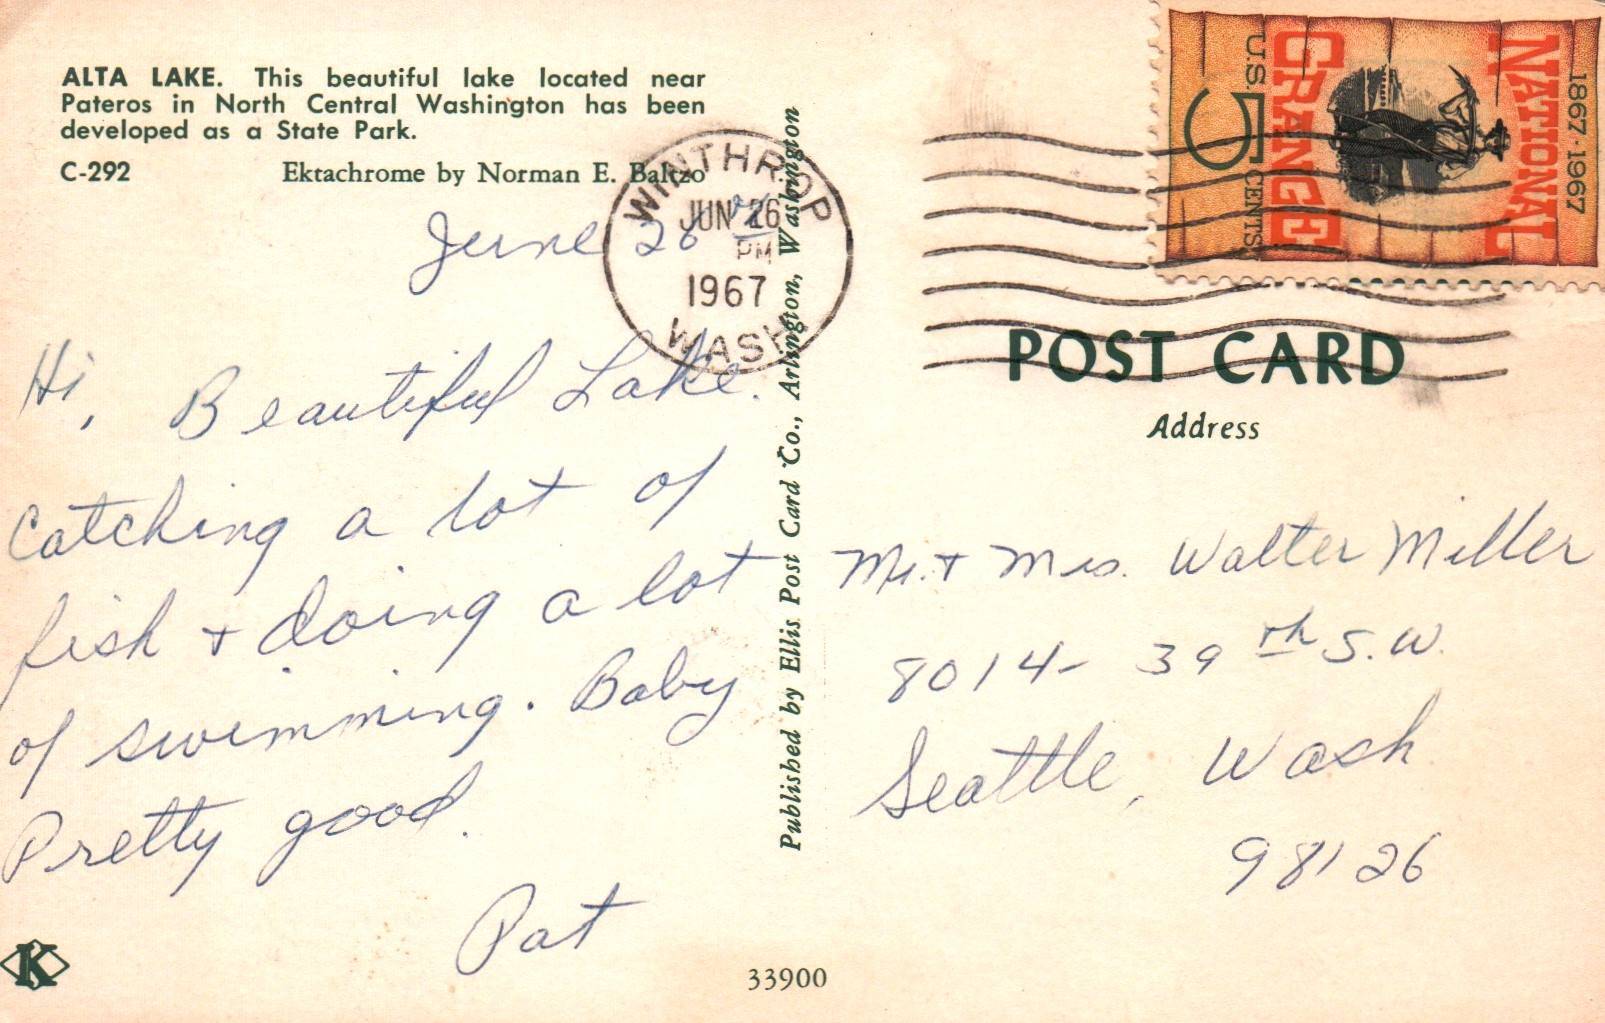 ALTA LAKE. This beautiful lake located near
Pateros in North Central Washington has been
developed as a State Park.
C-292 Ektachrome by Norman E. Baltzo
June 26th
Hi, Beautiful Lake.
Catching a lot of
fish + doing a lot
of swimming. Baby
Pretty good.
Pat
K
WINTHROP
JUN 26
PM
1967
WASH
Published by Ellis Post Card Co., Arlington, Washington
33900
1867-1967
NATIONAL
GRANGE
U.S. 5 CENTS
POST CARD
Address
Mr. + Mrs. Walter Miller
8014- 39th S.W.
Seattle, Wash
98126